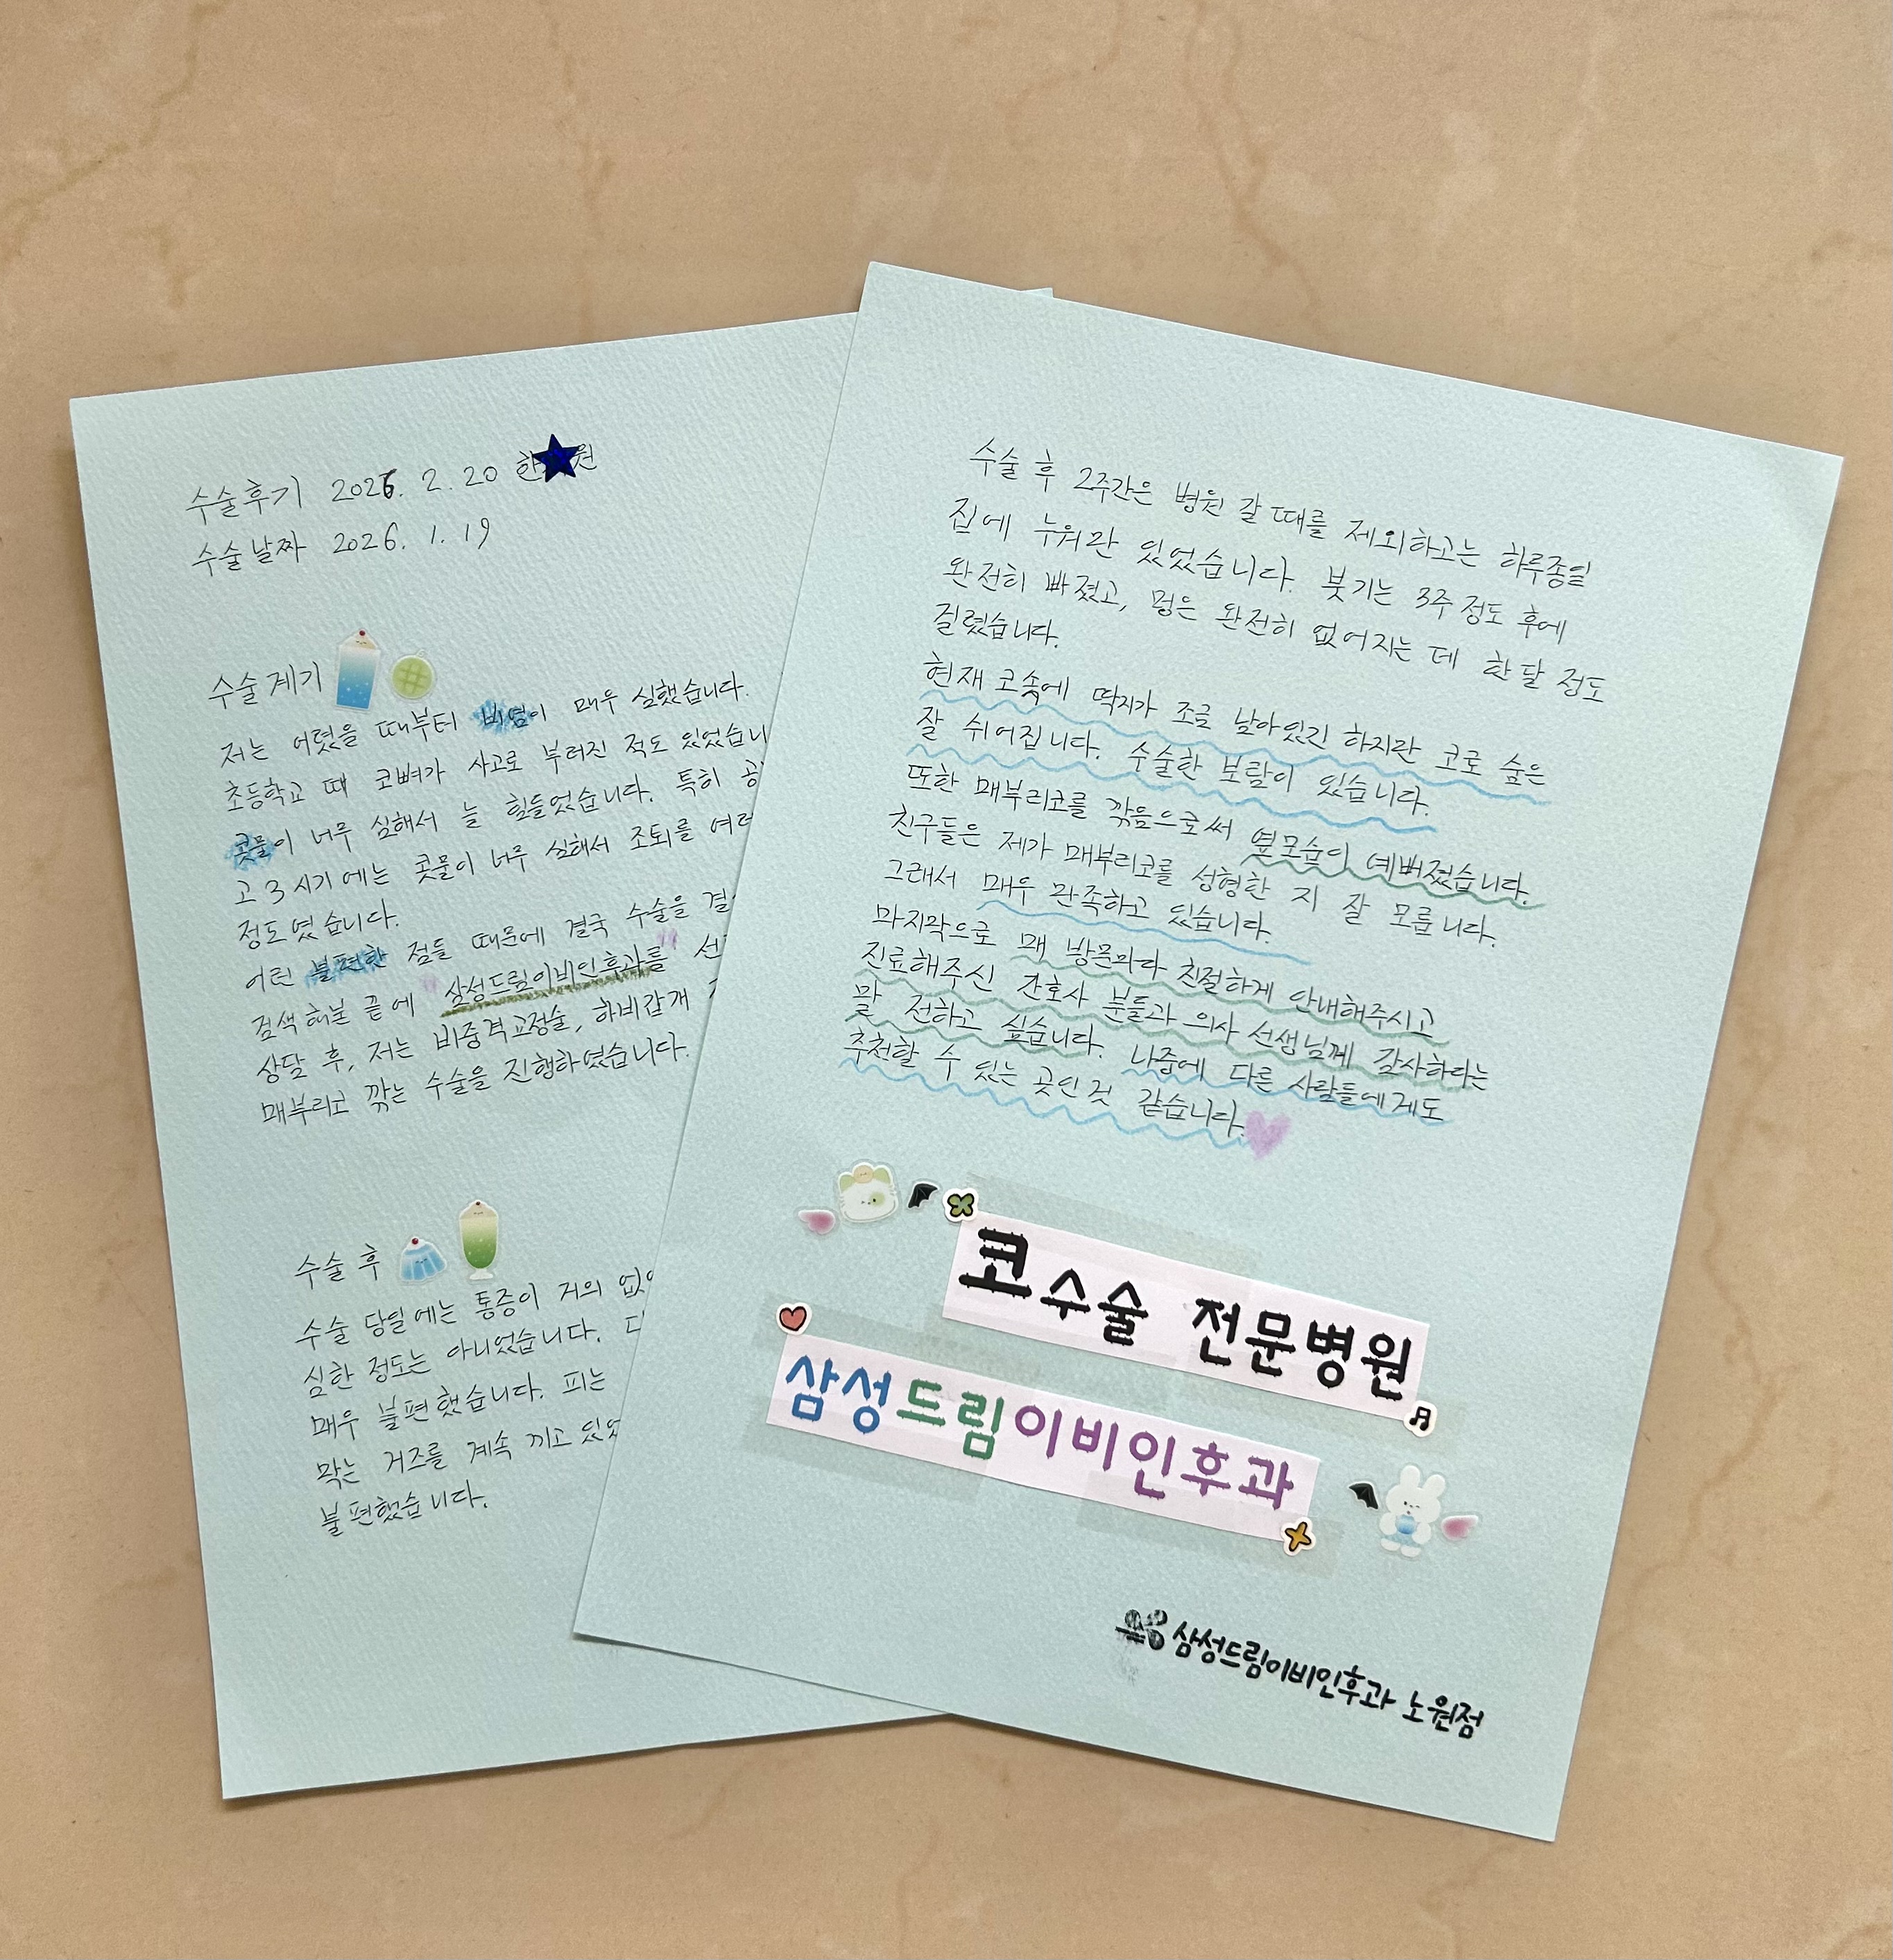 수술후기 2026. 2. 20 한 원
수술날짜 2026. 1. 19
수술계기
저는 어렸을 때부터 비염이 매우 심했습니다.
초등학교 때 코뼈가 사고로 부러진 적도 있었습니
콧물이 너무 심해서 늘 힘들었습니다. 특히
고3 시기에는 콧물이 너무 심해서 조퇴를
정도였습니다.
어린 불편한 점들 때문에 결국 수술을
검색해본 끝에 "삼성드림이비인후과를"
상담 후, 저는 비중격교정술, 하비갑개
매부리코 깎는 수술을 진행하였습니다.
수술 후
수술 당일에는 통증이 거의
심한 정도는 아니었습니다.
매우 불편했습니다. 피는
막는 거즈를 계속 끼고
불편했습니다.
수술 후 2주간은 병원 갈 때를 제외하고는 하루종일
집에 누워만 있었습니다. 붓기는 3주 정도 후에
완전히 빠졌고, 멍은 완전히 없어지는 데 한 달 정도
걸렸습니다.
현재 코속에 딱지가 조금 남아있긴 하지만 코로 숨은
잘 쉬어집니다. 수술한 보람이 있습니다.
또한 매부리코를 깎음으로써 옆모습이 예뻐졌습니다.
친구들은 제가 매부리코를 성형한 지 잘 모릅니다.
그래서 매우 만족하고 있습니다.
마지막으로 매 방문마다 친절하게 안내해주시고
진료해주신 간호사 분들과 의사 선생님께 감사하다는
말 전하고 싶습니다. 나중에 다른 사람들에게도
추천할 수 있는 곳인 것 같습니다.
코수술 전문병원
삼성드림이비인후과
삼성드림이비인후과 노원점